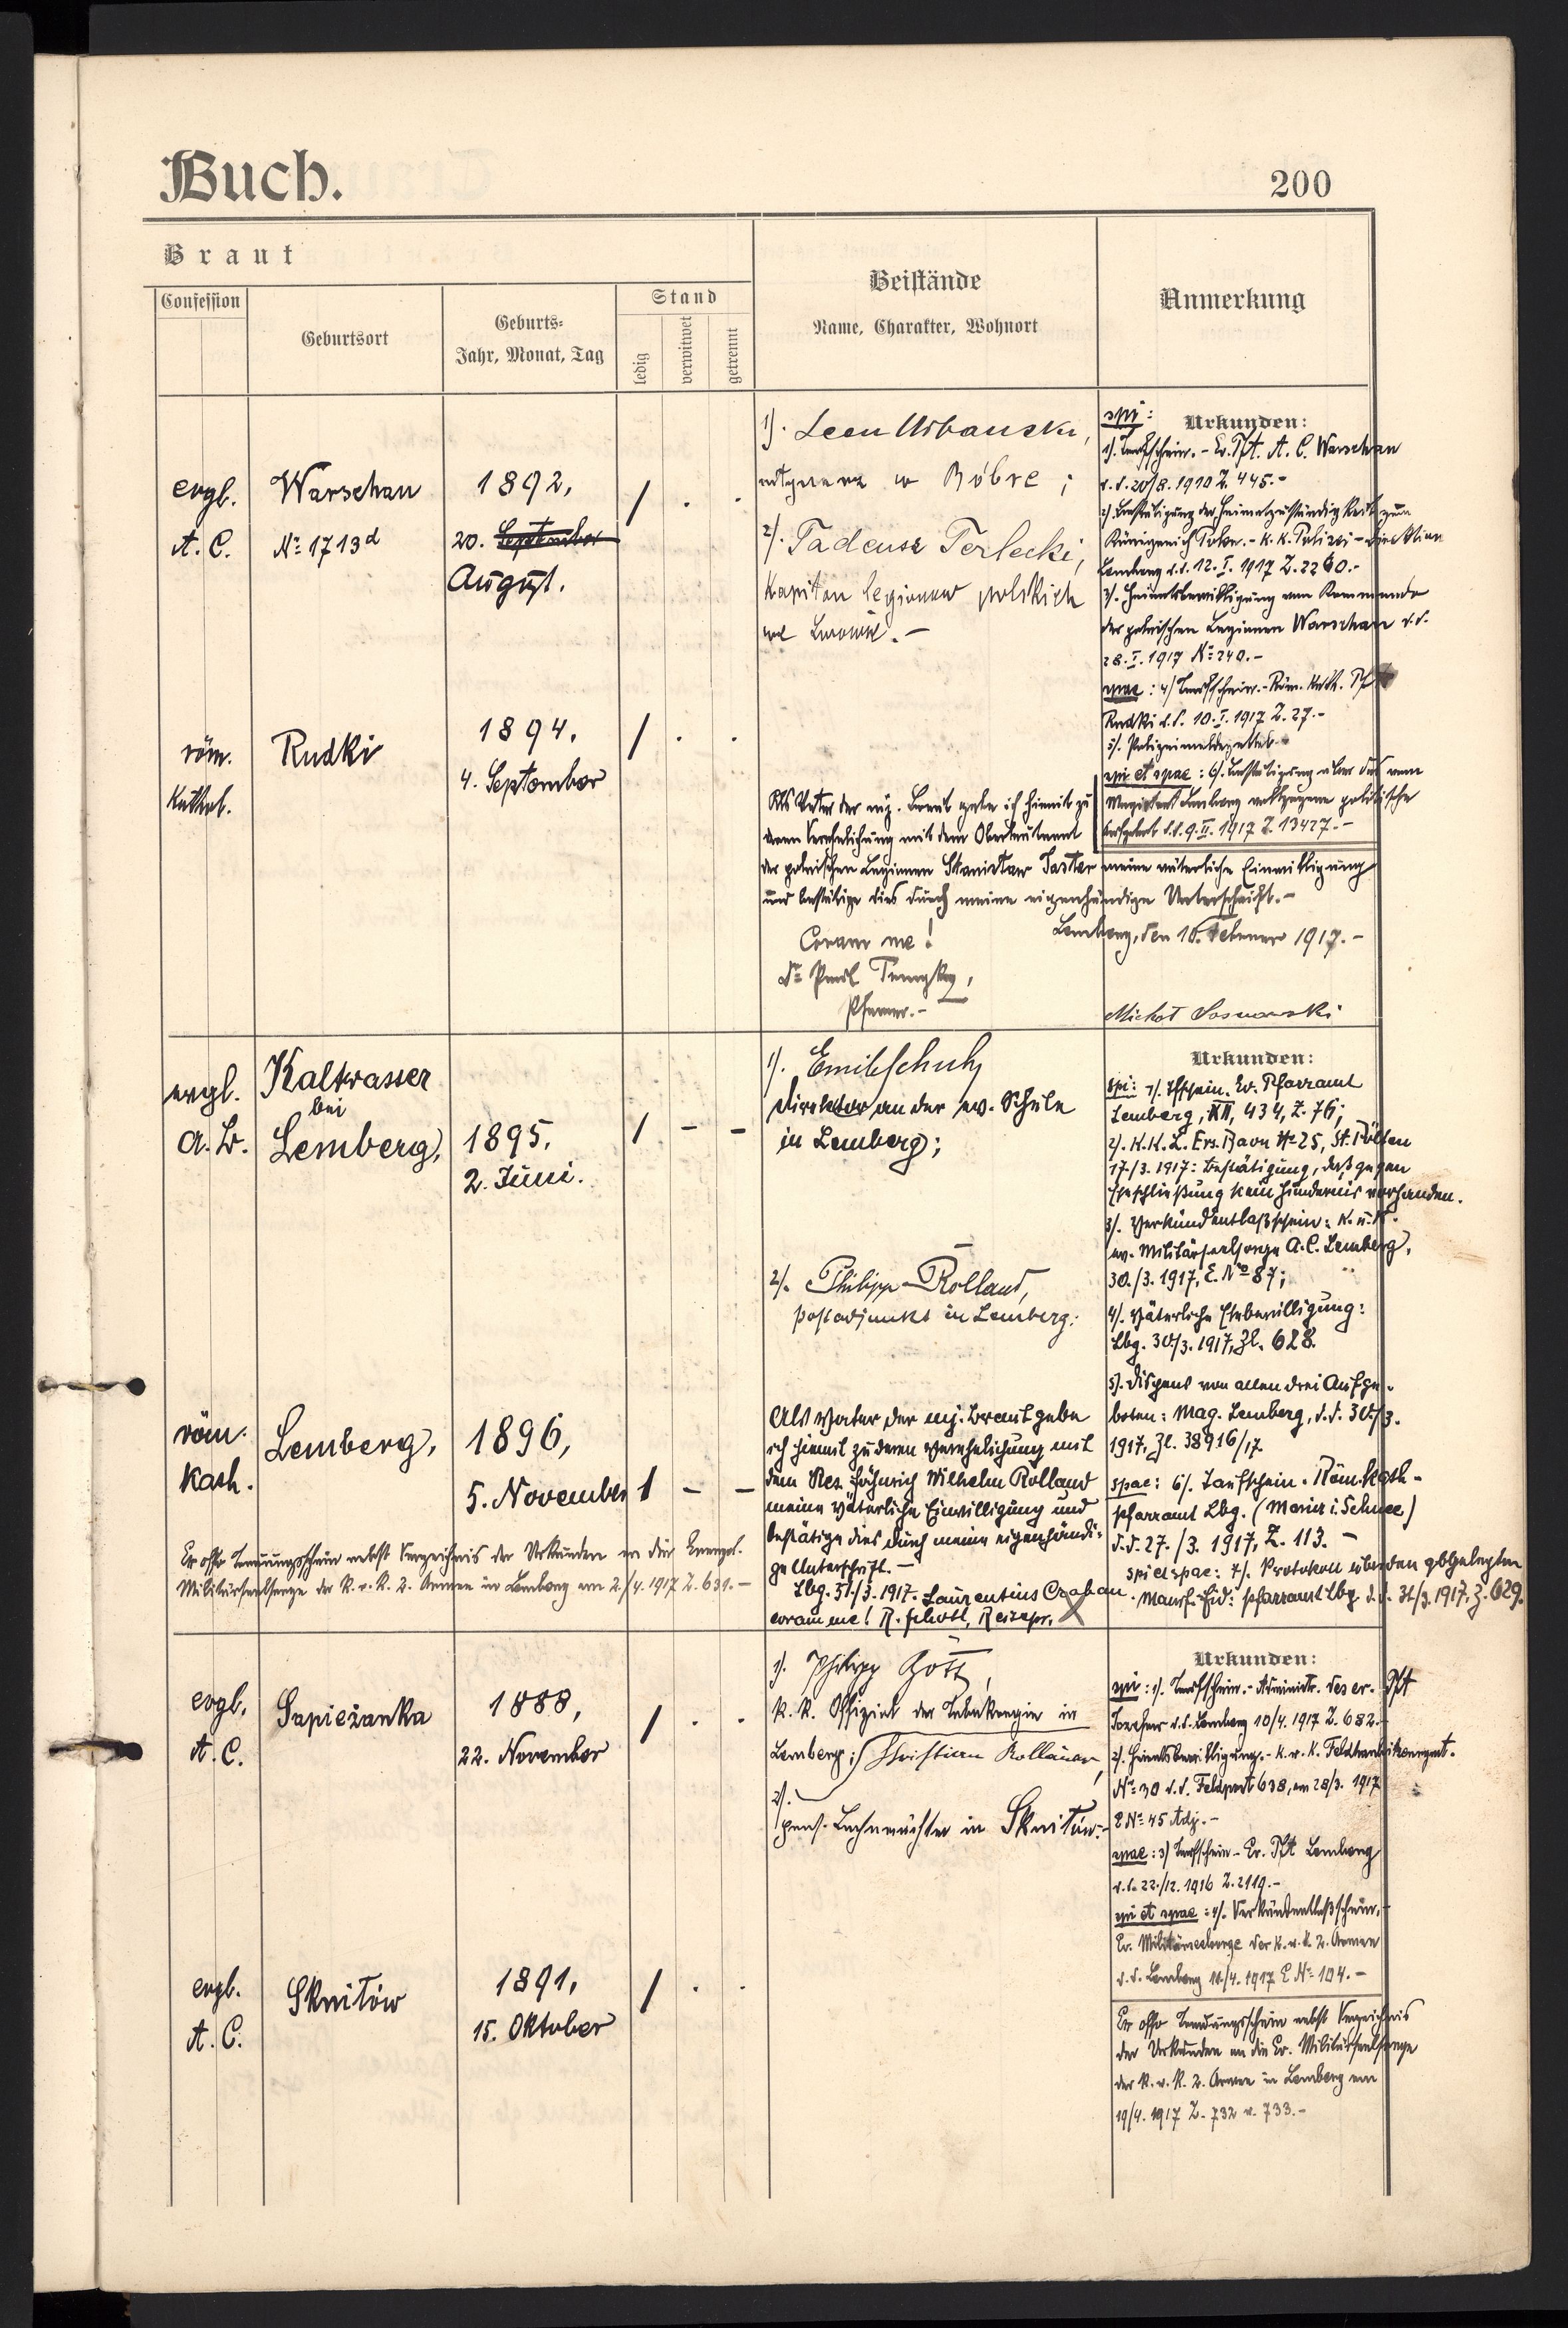 Buch.
200
Braut
Confession
Geburtsort
Geburts-
Jahr, Monat, Tag
Stand
ledig
verwitwet
getrennt
Beistände
Name, Charakter, Wohnort
Anmerkung
evgl.
A. C.
Warschau
No 1713d
1892,
20. September
August.
1). Leon Urbanski,
w Bóbrce ;
2). Tadeusz Terlecki,
Kapitan legionów polskich
we Lwowie.-
spi: Urkunden:
1). Taufschein.- Ev. Pft. A. C. Warschau
d. d. 20/8. 1910 Z. 445.-
2). Bestätigung der Heimatzuständigkeit zum
Königreich Polen.- K. K. Polizei-Direktion
Lemberg d. d. 12. I. 1917 Z. 2260.-
3). Heiratsbewilligung vom Kommando
der polnischen Legionen Warschau d. d.
28. I. 1917 No 240.-
spae: 4) Taufschein.- Röm. kath.
Rudki d. d. 10. I. 1917 Z. 27.-
5). Polizeimeldezettel.-
spi et spae: 6). Bestätigung über das vom
Magistrat Lemberg vollzogene politische
Aufgebot d. d. 9. II. 1917 Z. 13427.-
röm.
Kathol.
Rudki
1894.
4. September
Als Vater der mj. Braut gebe ich hiemit zu
deren Verehelichung mit dem Oberleutnant
der polnischen Legionen Stanisław Taster meine väterliche Einwilligung
und bestätige dies durch meine eigenhändige Unterschrift.-
Lemberg, den 10. Februar 1917.-
Coram me!
Dr Paul
Pfarrer.-
Michał Sosnowski
evgl.
A. B.
Kaltwasser
bei
Lemberg,
1895.
2. Juni.
1). Emil Schuh
Direktor an der ev. Schule
in Lemberg;
2). Philipp Rolland,
Postadjunkt in Lemberg.
Urkunden:
spi: 1). Tfschein. Ev. Pfarramt
Lemberg, 434, Z. 76;
2). K. K. L. Ers. Baon No 25, St. Pölten
17./3. 1917: Bestätigung, daß gegen
Eheschließung kein Hindernis vorhanden.
3). Verkündentlaßschein: K. u. K.
ev. Militärseelsorge A. C. Lemberg,
30./3. 1917, E. No 87;
4). Väterliche Ehebewilligung:
Lbg. 30/3. 1917, Zl. 628.
5). Dispens von allen drei Aufge-
boten: Mag. Lemberg, d. d. 30./3.
1917, Zl. 38916/17.
spae: 6). Taufschein. Röm. kath-
pfarramt Lbg. (Maria i. Schnee)
d. d. 27./3. 1917, Z. 113.-
spi et spae: 7). Protokoll über den abgelegten
Manif.-Eid: Pfarramt Lbg d. d. 31/3. 1917, Z. 629.
röm.
kath.
Lemberg,
1896,
5. November
Als Vater der mj. Braut gebe
ich hiemit zu deren Verehelichung mit
dem Res. Fähnrich Wilhelm Rolland
meine väterliche Einwilligung und
bestätige dies durch meine eigenhändi-
ge Unterschrift.-
Lbg. 31./3. 1917. Laurentius
coram me! R.
Ex offo Trauungsschein nebst Verzeichnis der Urkunden an die Evangel.
Militärseelsorge der K. u. K. 2. Armee in Lemberg am 2./4. 1917 Z. 631.-
evgl.
A. C.
Sapieżanka
1888,
22. November
1). Philipp
K. K. Offizial der Tabakregie in
Lemberg; Christian
2).
pens. Bahnwächter in Skniłów.-
Urkunden:
spi: 1). Taufschein.- Administr. des ev. Pft
d. d. Lemberg 10/4. 1917 Z. 682.-
2). Heiratsbewilligung.- K. u. K.
No 30 d. d. Feldpost 638, am 28/3. 1917
E No 45 Adj.-
spae: 3) Taufschein- Ev. Pft Lemberg
d. d. 22./12. 1916 Z. 2119.-
spi et spae: 4). Verkündentlaßschein.-
Ev. Militärseelsorge der K. u. K. 2. Armee
d. d. Lemberg 11./4. 1917 E No 104.-
evgl.
A. C.
Skniłów
1891,
15. Oktober
Ex offo Trauungsschein nebst Verzeichnis
der Urkunden an die Ev. Militärseelsorge
der K. u. K. 2. Armee in Lemberg am
19/4. 1917 Z. 732 u. 733.-